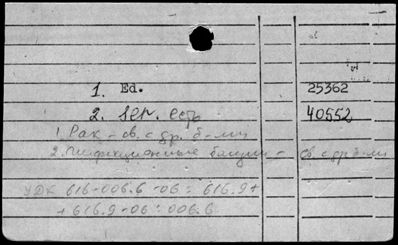 1. Ed. 25362
2. 40552
1. Рак - св. с др. б-ми
2. Инфекционные - св. с др. б-ми
УДК 616-006.6-06 : 616.9 +
+ 616.9-06 : 006.6